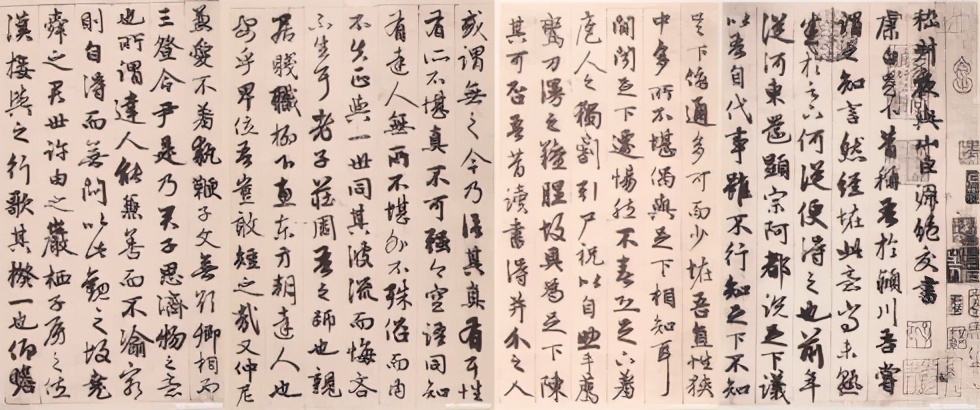 嵇叔夜與山巨源絕交書
康白足下昔稱吾於潁川吾嘗
謂之知言然經怪此意尚未熟
悉於足下何從便得之也前年
從河東還顯宗阿都說足下議
以吾自代事雖不行知足下不知
足下傍通多可而少怪吾直性狹
中多所不堪偶與足下相知耳
間聞足下遷惕然不喜恐足下羞
庖人之獨割引尸祝以自助手薦
鸞刀漫之羶腥故具為足下陳
其可否吾昔讀書得并介之人
或謂無之今乃信其真有耳性
有所不堪真不可強今空語同知
有達人無所不堪外不殊俗而內
不失正與一世同其波流而悔吝
不生耳老子莊周吾之師也親
居賤職柳下惠東方朔達人也
安乎卑位吾豈敢短之哉又仲尼
兼愛不羞執鞭子文無欲卿相而
三登令尹是乃君子思濟物之意
也所謂達人能兼善而不渝窮
則自得而無悶以此觀之故堯
舜之君世許由之巖栖子房之佐
漢接輿之行歌其揆一也仰瞻